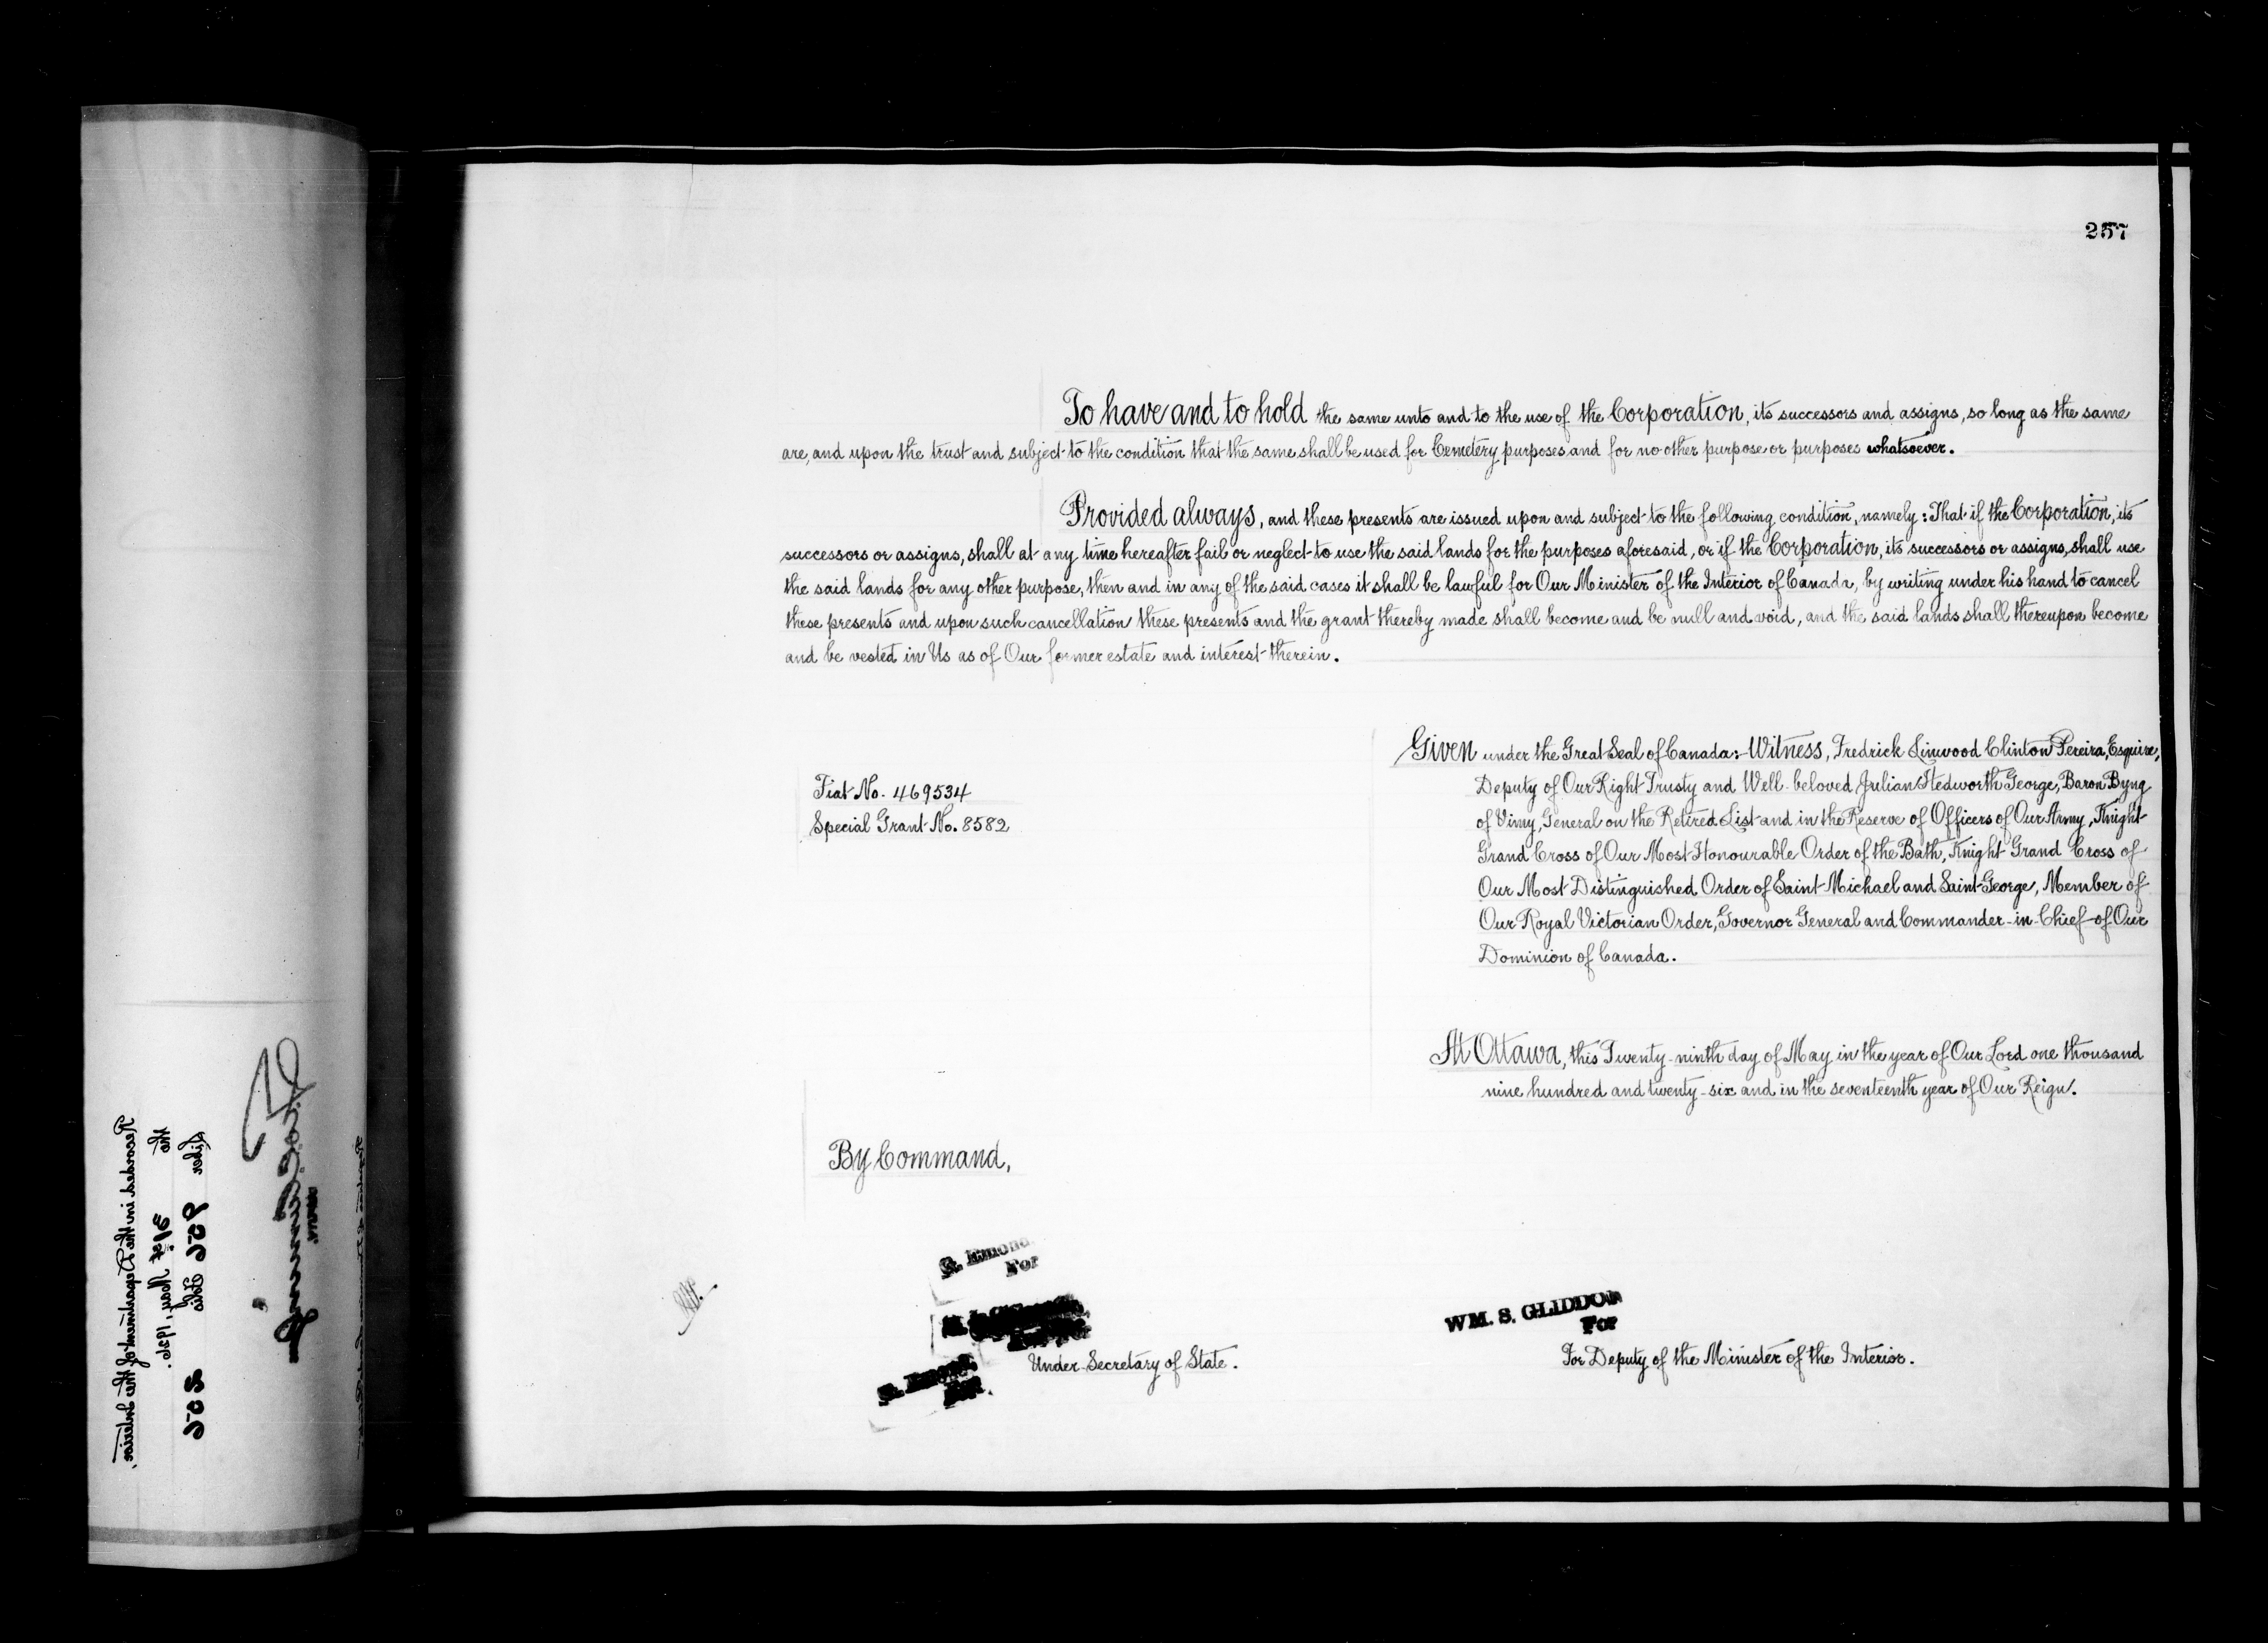 257
To have and to hold the same unto and to the use of the Corporation, its successors and assigns, so long as the same
are, and upon the trust and subject to the condition that the same shall be used for Cemetery purposes and for no other purpose or purposes whatsoever.
Provided always, and these presents are issued upon and subject to the following condition, namely: That if the Corporation, its
successors or assigns, shall at any time hereafter fail or neglect to use the said lands for the purposes aforesaid, or if the Corporation, its successors or assigns, shall use
the said lands for any other purpose, then and in any of the said cases it shall be lawful for Our Minister of the Interior of Canada, by writing under his hand to cancel
these presents and upon such cancellation these presents and the grant thereby made shall become and be null and void, and the said lands shall thereupon become
and be vested in Us as of Our former estate and interest therein.
Given under the Great Seal of Canada:- Witness, Fredrick Linwood Clinton Pereira, Esquire,
Deputy of Our Right Trusty and Well-beloved Julian Hedworth George, Baron Byng
of Vimy, General on the Retired List and in the Reserve of Officers of Our Army, Knight
Grand Cross of Our Most Honourable Order of the Bath, Knight Grand Cross of
Our Most Distinguished Order of Saint Michael and Saint George, Member of
Our Royal Victorian Order, Governor General and Commander-in-Chief of Our
Dominion of Canada.
Fiat No. 469534
Special Grant No. 8582
At Ottawa, this Twenty-ninth day of May in the year of Our Lord one thousand
nine hundred and twenty-six and in the seventeenth year of Our Reign.
By Command,
R. Emond
For
Under-Secretary of State.
WM. S. GLIDDON
For
For Deputy of the Minister of the Interior.
Recorded in the Department of the Interior,
the 31st May, 1926.
Liber 956 Folio 256